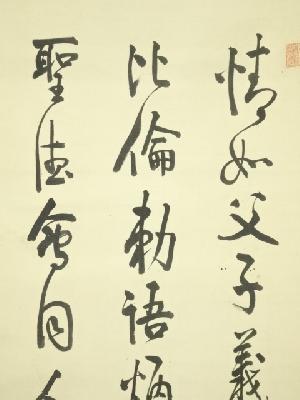 情如父子義
比倫勅語炳
聖徳會同人